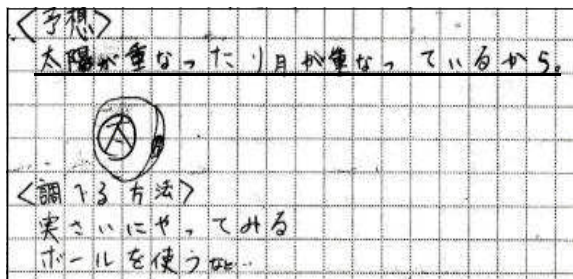 <予想>
太陽が重なったり月が重なっているから。
太
<調べる方法>
実さいにやってみる
ボールを使うなど…